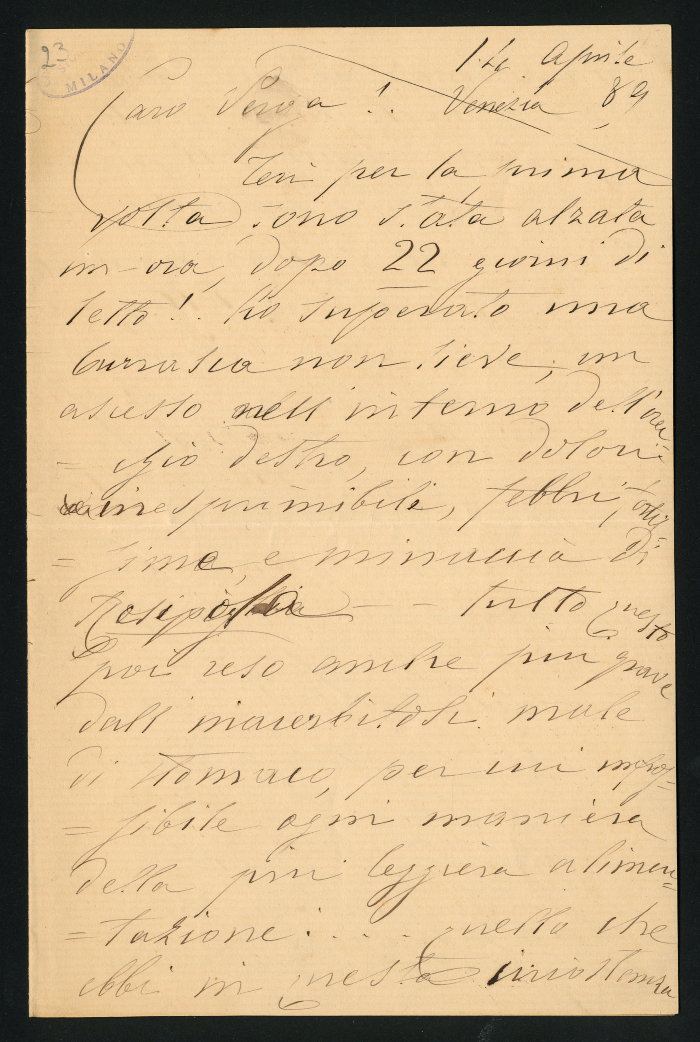 23
MILANO
14 Aprile
Caro Verga!. Venezia 89
Ieri per la prima
volta sono stata alzata
un-ora, dopo 22 giorni di
letto!. ho superato una
burrasca non lieve, un
ascesso nell'interno dell'orec-
=chio destro, con dolori
inesprimibili, febbri fortis
=sime, e minaccia di
Resipola -- tutto questo
poi reso anche più grave
dall'inacerbitosi male
di stomaco, per cui impos=
=sibile ogni maniera
della più leggiera alimen=
=tazione.... quello che
ebbi in questa circostanza